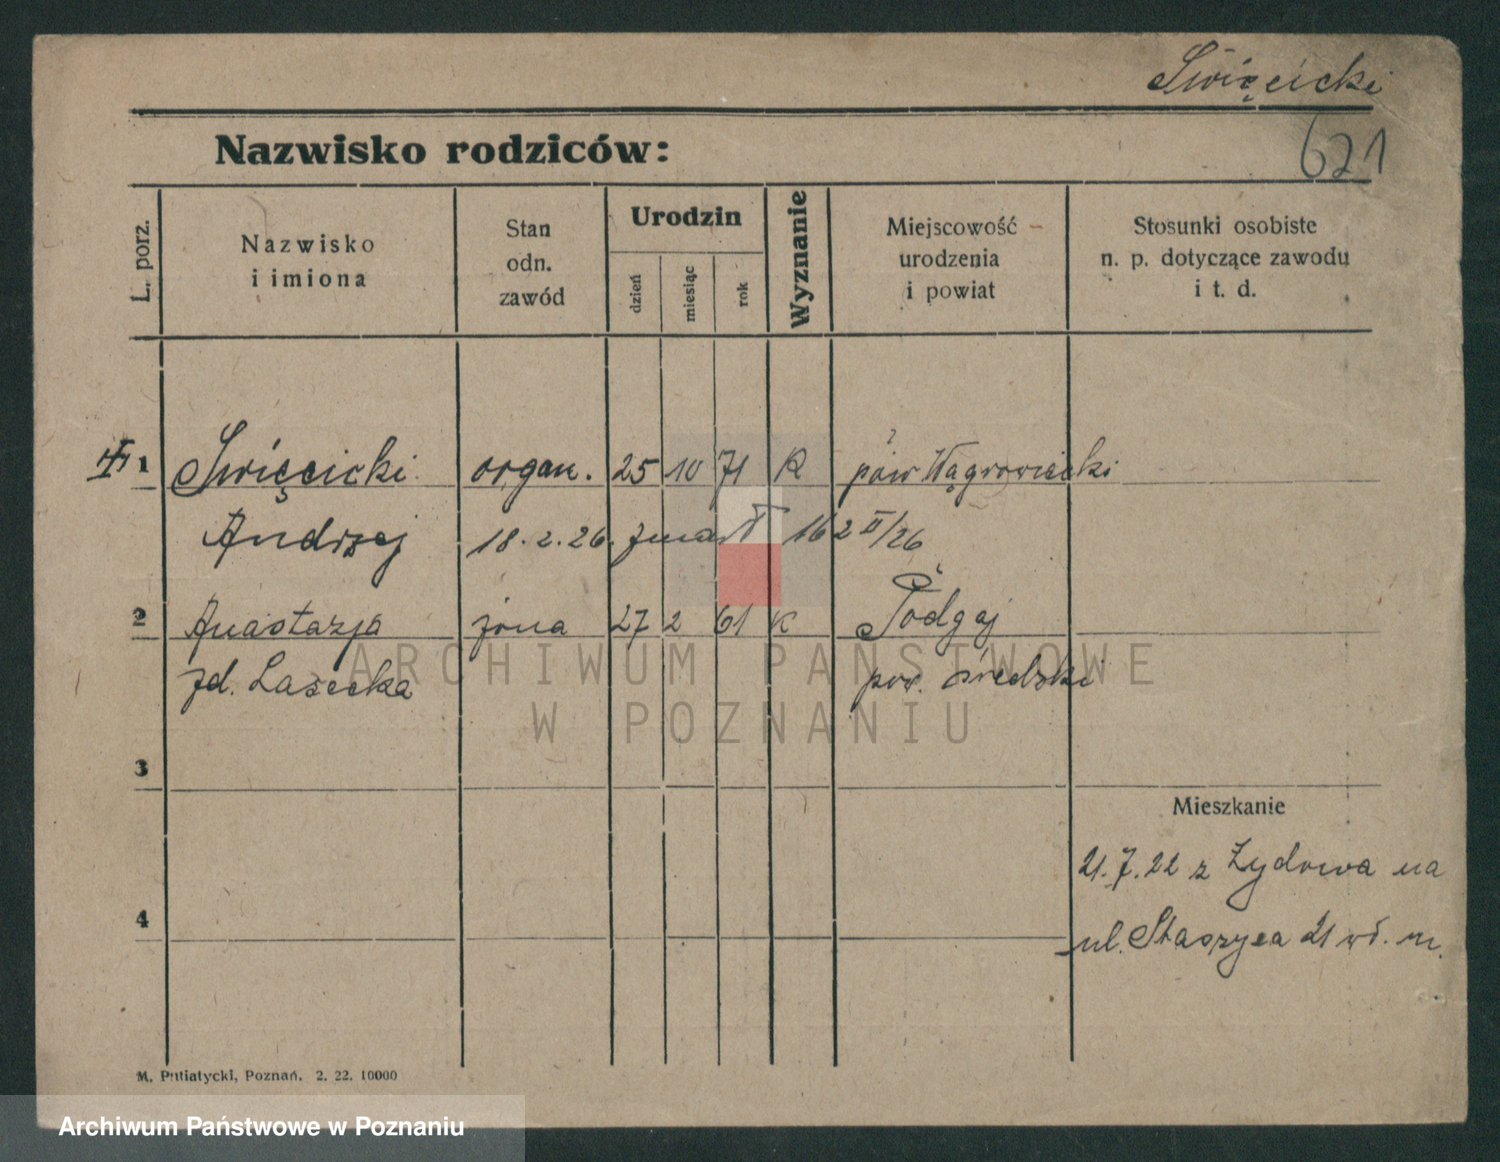 Święcicki
621
Nazwisko rodziców:
L. porz.
Nazwisko
i imiona
Stan
odn.
zawód
Urodzin
dzień
miesiąc
rok
Wyznanie
Miejscowość
urodzenia
i powiat
Stosunki osobiste
n. p. dotyczące zawodu
i t. d.
1 Święcicki organ. 25 10 71 K pow Wągrowiecki
Andrzej 18.2.26. zmarł 162 II/26
2 Anastazja żona 27 2 61 K Podgaj
zd. Lasecka pow. średzki
ARCHIWUM PAŃSTWOWE
W POZNANIU
3
Mieszkanie
21.7.22 z Żydowa na
4
ul. Staszyca 21 wł. m.
M. Putiatycki, Poznań. 2. 22. 10000
Archiwum Państwowe w Poznaniu